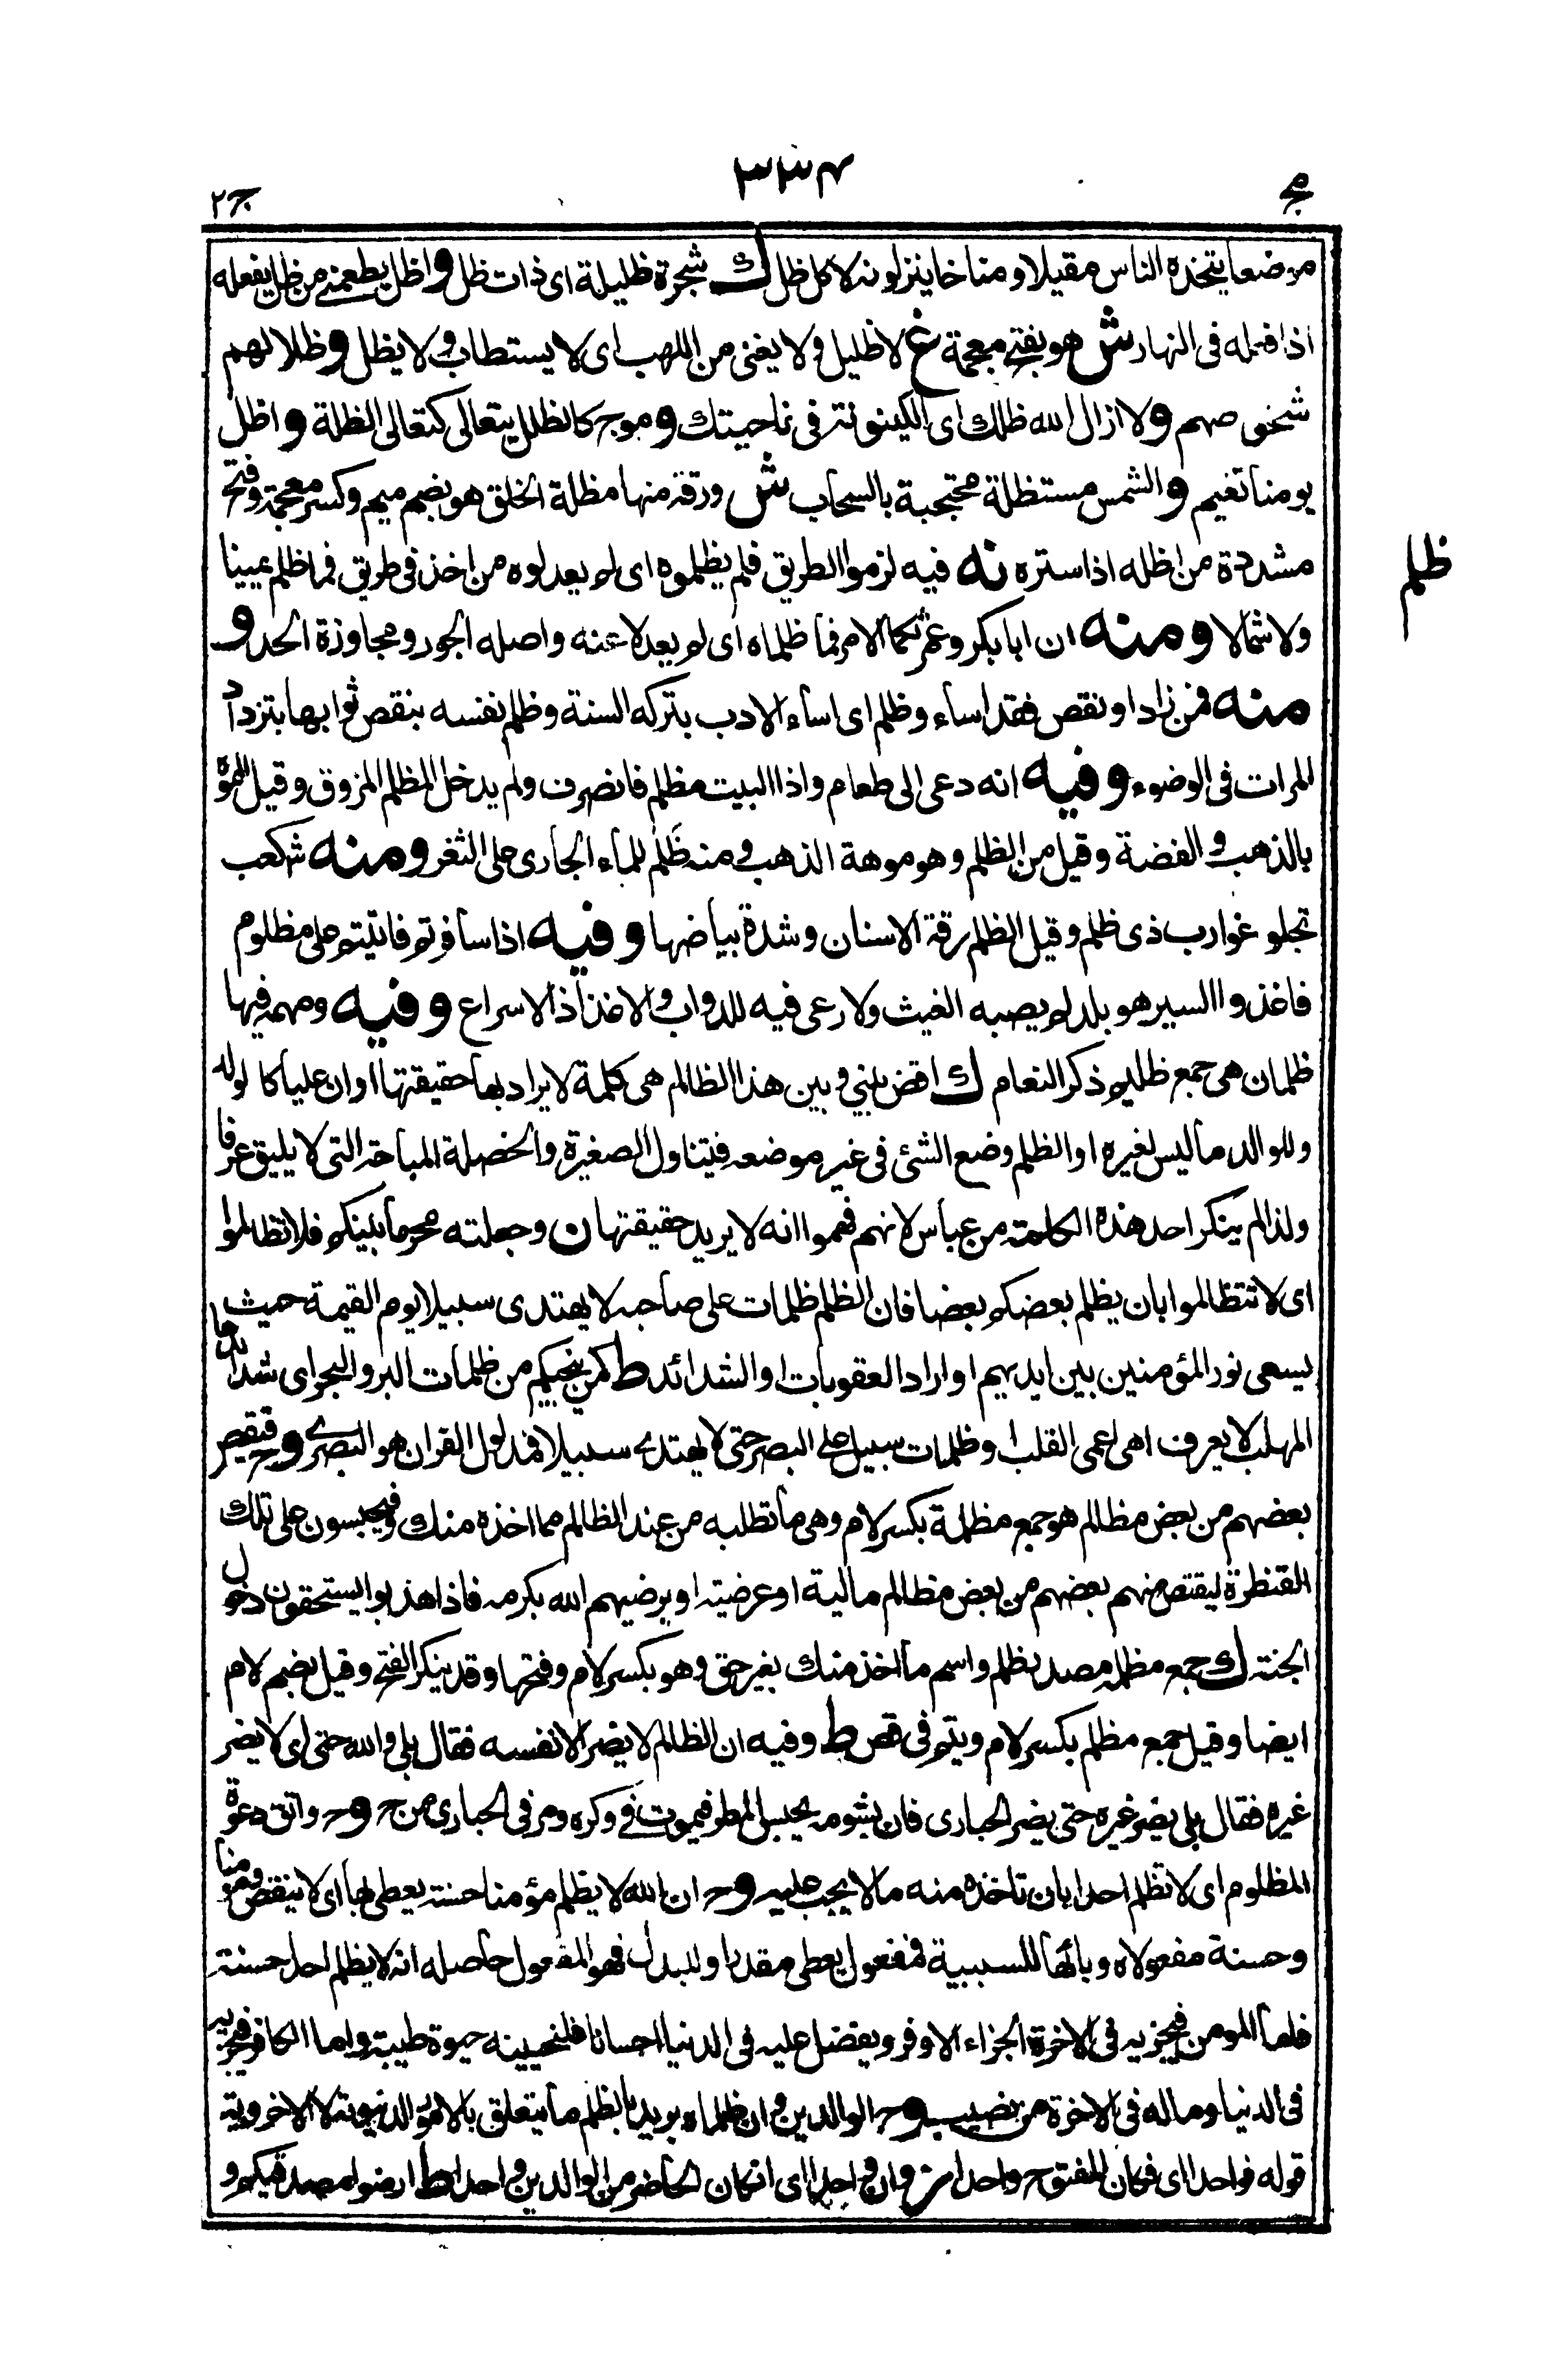 مج
٣٣٤
ج٢
موضعا يتخذه الناس مقيلا ومناخا ينزلونه لا كل ظل ك شجرة ظليلة اى ذات ظل و اظل يطعمنى من ظل يفعله
اذا فعله فى النهار ش هو بفتح معجمة غ لا ظليل ولا يغنى من اللهب اى لا يستطاب ولا يظل و ظلالهم
شخوصهم و لا ازال الله ظلك اى الكينونة فى ناحيتك و موج كالظلل يتعالى كتعالى الظلة و اظل
يومنا تغيم و الشمس مستظلة محتجبة بالسحاب ش ورقة منها مظلة الخلق هو بضم ميم وكسر معجمة وفتح
مشددة من اظله اذا ستره نه فيه لزموا الطريق فلم يظلموه اى لم يعدلوه من اخذ فى طريق فما ظلم يمينا
ولا شمالا ومنه ان ابا بكر وعمر ثكما الامر فما ظلماه اى لم يعدلا عنه واصله الجور ومجاوزة الحد و
منه فمن زاد او نقص فقد اساء وظلم اى اساء الادب بتركه السنة وظلم نفسه بنقص ثوابها بتزداد
المرات فى الوضوء وفيه انه دعى الى طعام واذا البيت مظلم فانصرف ولم يدخل المظلم المزوق وقيل المموّه
بالذهب والفضة وقيل من الظلم وهو موهة الذهب ومنه ظَلْم للماء الجارى على الثغر ومنه ش كعب
تجلو غوارب ذى ظلم وقيل الظلم رقة الاسنان وشدة بياضها وفيه اذا سافرتم فاتيتم على مظلوم
فاغذوا السير هو بلد لم يصبه الغيث ولا رعى فيه للدواب والاغذاذ الاسراع وفيه ومهمه فيها
ظلمان هى جمع ظليم ذكر النعام ك اقض بينى وبين هذا الظالم هى كلمة لا يراد بها حقيقتها او ان عليا كالولد
وللوالد ما ليس لغيره او الظلم وضع الشئ فى غير موضعه فيتناول الصغيرة والخصلة المباحة التى لا يليق عرفا
ولذا لم ينكر احد هذه الكلمة من عباس لانهم فهموا انه لا يريد حقيقتها ن وجعلته محرما بينكم فلا تظالموا
اى لا تتظالموا بان يظلم بعضكم بعضا فان الظلم ظلمات على صاحبه لا يهتدى سبيلا يوم القيمة حيث
يسعى نور المؤمنين بين ايديهم او اراد العقوبات او الشدائد ط كمن ينجيكم من ظلمات البر والبحر اى شدائدها
المهلب لا يعرف اهى اعمى القلب او ظلمات سبيل على البصر حتى لا يهتدى سبيلا فمدلول القران هو البصرى وح فيقص
بعضهم من بعض مظالم هو جمع مظلمة بكسر لام وهى ما تطلبه من عند الظالم مما اخذه منك وفيحبسون على تلك
القنطرة ليقتص منهم بعضهم من بعض مظالم مالية او عرضية او يرضيهم الله بكرمه فاذا هذبوا يستحقون دخول
الجنة ك جمع مظلمة مصدر ظلم واسم ما اخذ منك بغير حق وهو بكسر لام وفتحها وقد ينكر الفتح وقيل بضم لام
ايضا وقيل جمع مظلم بكسر لام ويتم فى قص ط وفيه ان الظالم لا يضر الا نفسه فقال بلى والله حتى اى لا يضر
غيره فقال بلى يضر غيره حتى يضر الحبارى فان بشومه يحبس المطر فيموت فى وكره ومر فى الحبارى من ح وح واتق دعوة
المظلوم اى لا تظلم احدا بان تاخذه منه ما لا يجب عليه وح ان الله لا يظلم مؤمنا حسنة يعطى بها اى لا ينقص ومؤمنا
وحسنة مفعولاه وبائها للسببية فمفعول يعطى مقدر او للبدل فهو المفعول حاصله انه لا يظلم احدا حسنة
فلما المومن فيجزيه فى الاخرة الجزاء الاوفر ويفضل عليه فى الدنيا احسانا فلنحيينه حيوة طيبة واما الكافر فيجزيه
فى الدنيا وما له فى الاخرة من نصيب وح الوالدين وان ظلماه يريد بالظلم ما يتعلق بالامور الدنيوية لا الاخروية
قوله فواحدا اى فكان المفتوح واحدا ش وان واحدا اى ان كان الحاضر من الوالدين واحدا ط ارضوا مصدقيكم و
ظلم